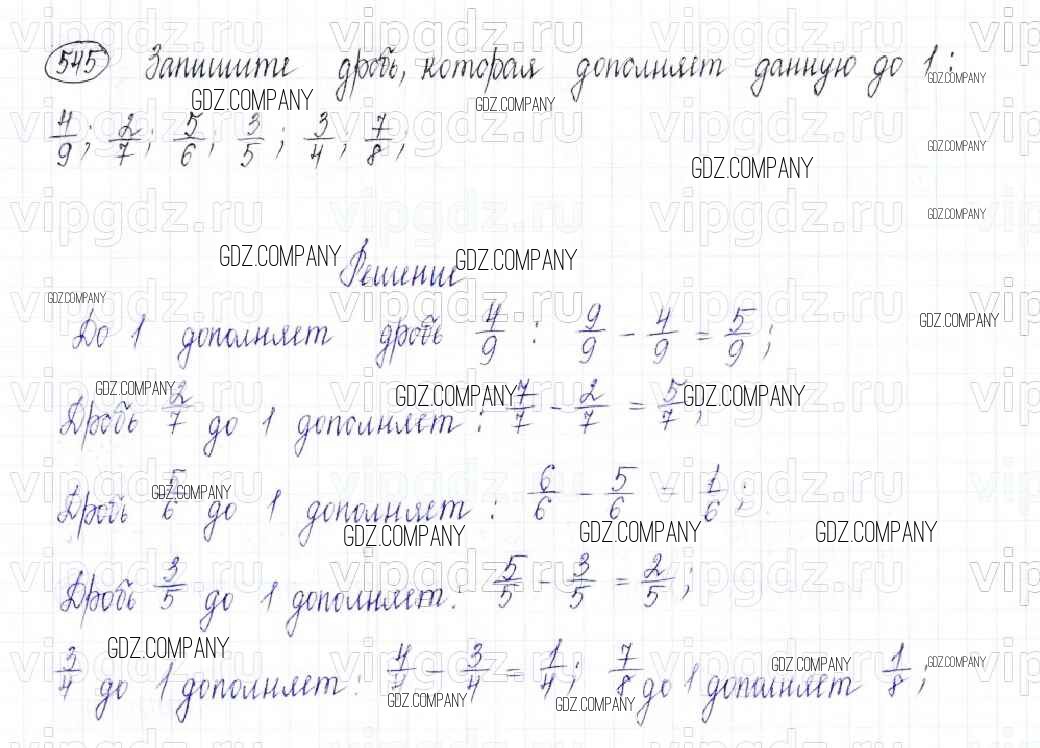 545 Запишите дробь, которая дополняет данную до 1:
4/9; 2/7; 5/6; 3/5; 3/4; 7/8;
Решение
До 1 дополняет дробь 4/9 : 9/9 - 4/9 = 5/9;
Дробь 2/7 до 1 дополняет: 7/7 - 2/7 = 5/7;
Дробь 5/6 до 1 дополняет: 6/6 - 5/6 = 1/6;
Дробь 3/5 до 1 дополняет: 5/5 - 3/5 = 2/5;
3/4 до 1 дополняет: 4/4 - 3/4 = 1/4; 7/8 до 1 дополняет 1/8;
vipgdz.ru
GDZ.COMPANY